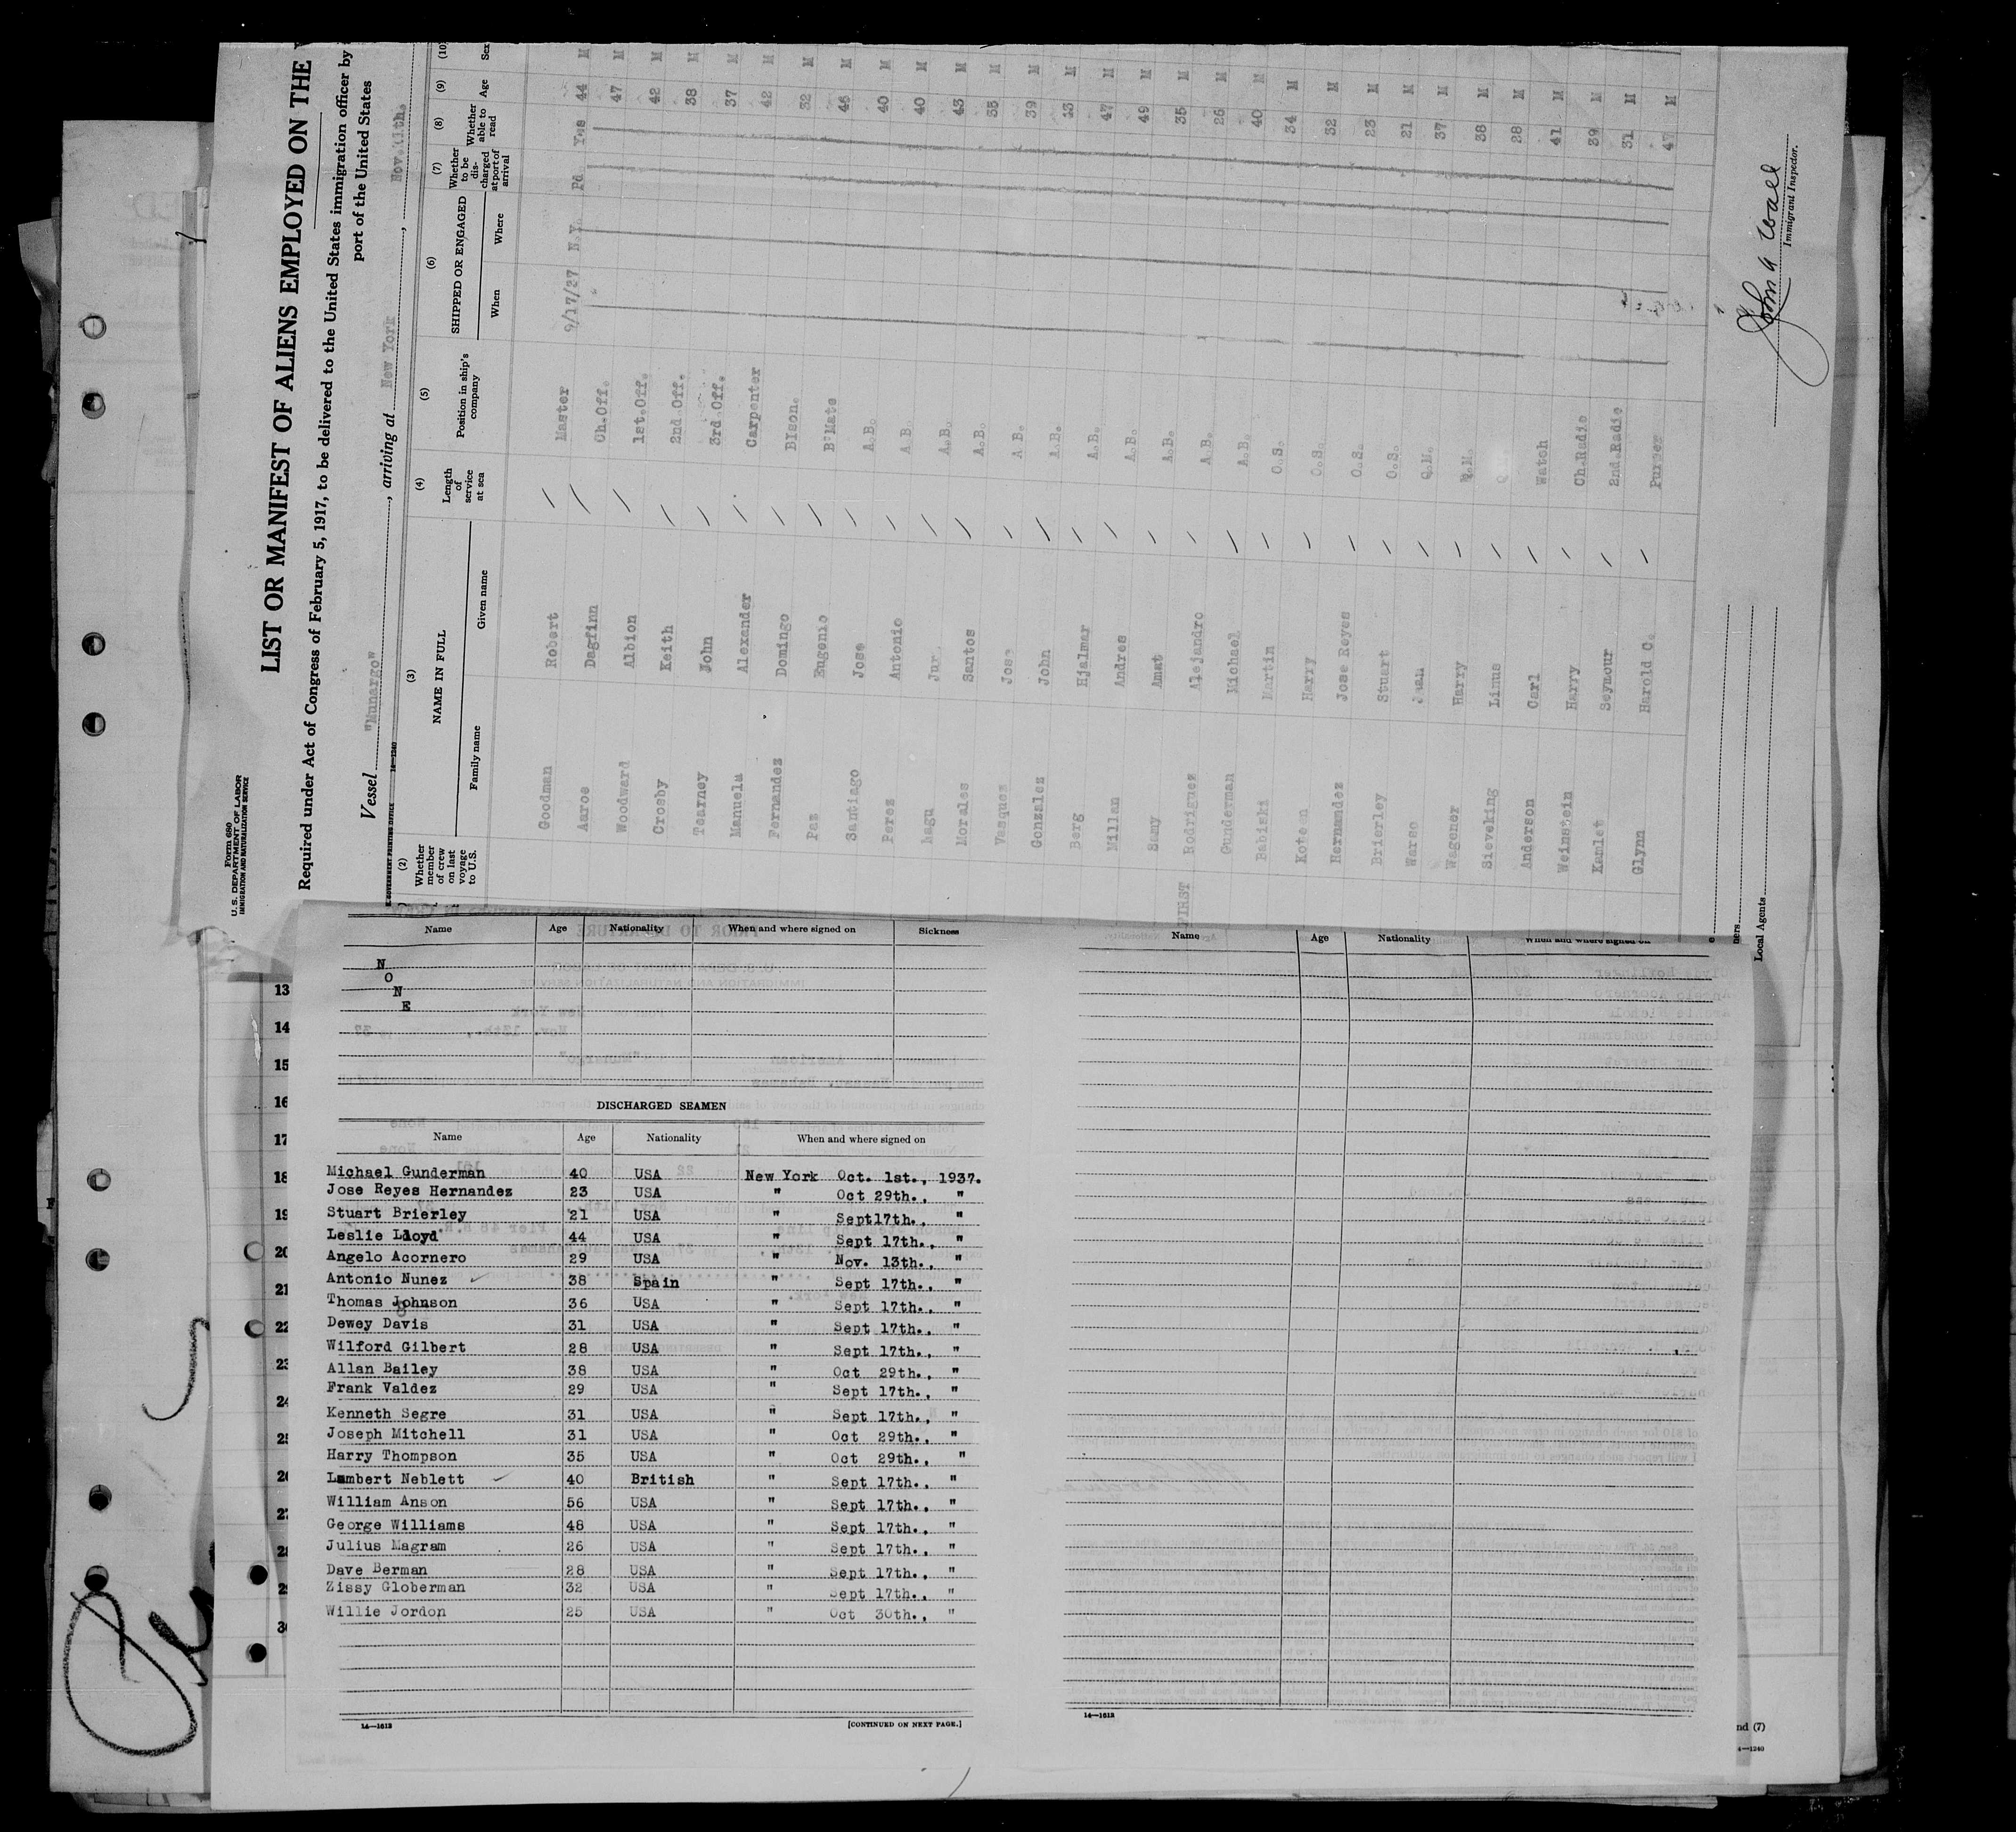 Form 680
U. S. DEPARTMENT OF LABOR
IMMIGRATION AND NATURALIZATION SERVICE
LIST OR MANIFEST OF ALIENS EMPLOYED ON THE
Required under Act of Congress of February 5, 1917, to be delivered to the United States immigration officer by
port of the United States
Vessel "Munargo", arriving at New York,
(2) (3) (4) (5) (6) (7) (8) (9) (10)
Whether member of crew on last voyage to U.S. NAME IN FULL Length of service at sea Position in ship's company SHIPPED OR ENGAGED Whether to be discharged at port of arrival Whether able to read Age Sex
Family name Given name When Where
Goodman Robert Master 9/17/27 N.Y. Pd Yes 44 M
Aaroe Dagfinn Ch.Off. 47 M
Woodward Albion 1st.Off. 42 M
Crosby Keith 2nd.Off. 38 M
Tearney John 3rd.Off. 37 M
Manuela Alexander Carpenter 42 M
Fernandez Domingo 32 M
Paz Eugenio B'Mate 46 M
Santiago Jose A.B. 40 M
Perez Antonio A.B. 40 M
A.B. 43 M
Morales Santos A.B. 35 M
Vasquez Jose A.B. 39 M
Gonzalez John A.B. M
Berg Hjalmar A.B. 47 M
Millan Andres A.B. 49 M
Samy Amat A.B. 35 M
FIRST Rodriguez Alejandro A.B. 26 M
Gunderman Michael A.B. 40 M
Babiski Martin O.S. 34 M
Koteen Harry O.S. 32 M
Hernandez Jose Reyes O.S. 23 M
Brierley Stuart O.S. 21 M
Warso Q.M. 37 M
Wagener Harry Q.M. 38 M
Sieveking Linus 28 M
Anderson Carl Watch 41 M
Weinstein Harry Ch.Radio 39 M
Kamlet Seymour 2nd.Radio 31 M
Glynn Harold C. Purser 47 M
John A Wall
Immigrant Inspector.
Local Agents
Name Age Nationality When and where signed on Sickness
N
O
N
E
DISCHARGED SEAMEN
Name Age Nationality When and where signed on
Michael Gunderman 40 USA New York Oct. 1st., 1937.
Jose Reyes Hernandez 23 USA " Oct 29th., "
Stuart Brierley 21 USA " Sept17th., "
Leslie Lloyd 44 USA " Sept 17th., "
Angelo Acornero 29 USA " Nov. 13th., "
Antonio Nunez 38 Spain " Sept 17th., "
Thomas Johnson 36 USA " Sept 17th., "
Dewey Davis 31 USA " Sept 17th., "
Wilford Gilbert 28 USA " Sept 17th., "
Allan Bailey 38 USA " Oct 29th., "
Frank Valdez 29 USA " Sept 17th., "
Kenneth Segre 31 USA " Sept 17th., "
Joseph Mitchell 31 USA " Oct 29th., "
Harry Thompson 35 USA " Oct 29th., "
Lambert Neblett 40 British " Sept 17th., "
William Anson 56 USA " Sept 17th., "
George Williams 48 USA " Sept 17th., "
Julius Magram 26 USA " Sept 17th., "
Dave Berman 28 USA " Sept 17th., "
Zissy Globerman 32 USA " Sept 17th., "
Willie Jordon 25 USA " Oct 30th., "
14—1613 [CONTINUED ON NEXT PAGE.]
Name Age Nationality When and where signed on
14—1613
13
14
15
16
17
18
19
20
21
22
23
24
25
nd (7)
4—1240